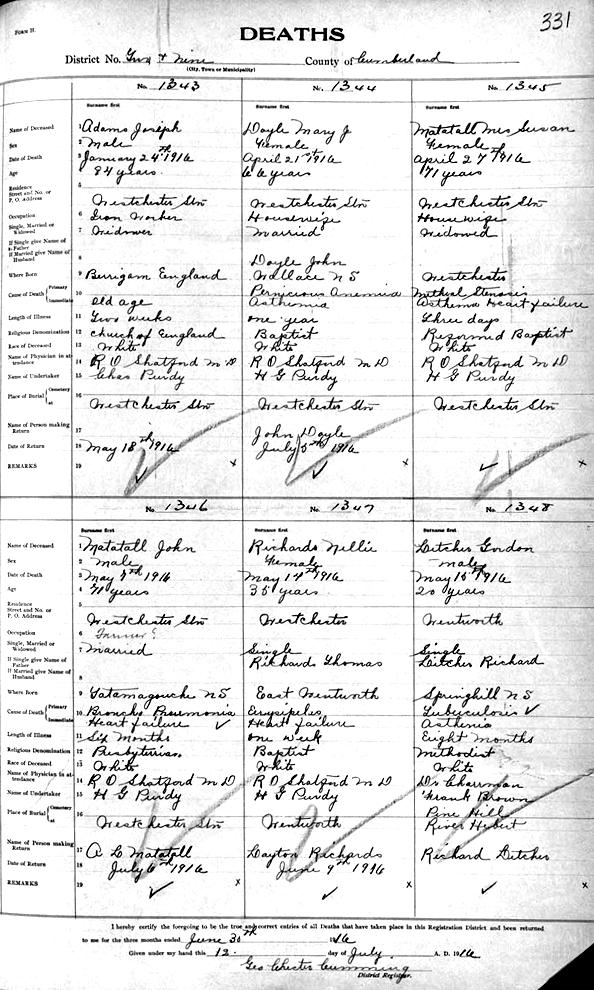 FORM H.
331
DEATHS
District No. Two & Nine County of Cumberland
(City, Town or Municipality)
No. 1343 No. 1344 No. 1345
Surname first Surname first Surname first
Name of Deceased 1 Adams Joseph Doyle Mary J Matatall Mrs Susan
Sex 2 Male Female Female
Date of Death 3 January 24th 1916 April 21st 1916 April 27th 1916
Age 4 84 years 66 years 71 years
Residence 5
Street and No. or
P. O. Address Westchester Stn Westchester Stn Westchester Stn
Occupation 6 Iron Worker Housewife Housewife
Single, Married or Widowed 7 Widower Married Widowed
If Single give Name of Father
If Married give Name of Husband 8 Doyle John
Where Born 9 Burrigam England Wallace N S Westchester
Cause of Death Primary 10 Pernicious Anemia Mithral Stenosis
Immediate Old age Asthenia Asthema Heart failure
Length of Illness 11 Two weeks One year Three days
Religious Denomination 12 Church of England Baptist Reformed Baptist
Race of Deceased 13 White White White
Name of Physician in attendance 14 R O Shatford M D R O Shatford M D R O Shatford M D
Name of Undertaker 15 Chas Purdy H G Purdy H G Purdy
Place of Burial Cemetery at 16 Westchester Stn Westchester Stn Westchester Stn
Name of Person making Return 17 John Doyle
Date of Return 18 May 18th 1916 July 5th 1916
REMARKS 19
No. 1346 No. 1347 No. 1348
Surname first Surname first Surname first
Name of Deceased 1 Matatall John Richards Nellie Letcher Gordon
Sex 2 Male Female Male
Date of Death 3 May 7th 1916 May 14th 1916 May 15th 1916
Age 4 71 years 35 years 20 years
Residence 5
Street and No. or
P. O. Address Westchester Stn Westchester Wentworth
Occupation 6 Farmer
Single, Married or Widowed 7 Married Single Single
If Single give Name of Father Richards Thomas Letcher Richard
If Married give Name of Husband 8
Where Born 9 Tatamagouche N S East Wentworth Springhill N S
Cause of Death Primary 10 Broncho Pneumonia Erysipeles Tuberculosis
Immediate Heart failure Heart failure Asthenia
Length of Illness 11 Six Months One week Eight Months
Religious Denomination 12 Presbyterian Baptist Methodist
Race of Deceased 13 White White White
Name of Physician in attendance 14 R O Shatford M D R O Shatford M D Dr
Name of Undertaker 15 H G Purdy H G Purdy Frank Brown
Place of Burial Cemetery Pine Hill
at 16 Westchester Stn Wentworth River Hebert
Name of Person making Return 17 A L Matatall Dayton Richards Richard Letcher
Date of Return 18 July 6th 1916 June 9th 1916
REMARKS 19
I hereby certify the foregoing to be the true and correct entries of all Deaths that have taken place in this Registration District and been returned
to me for the three months ended June 30th 1916
Given under my hand this 12 day of July A. D. 1916
Geo Chester Cumming
District Registrar.